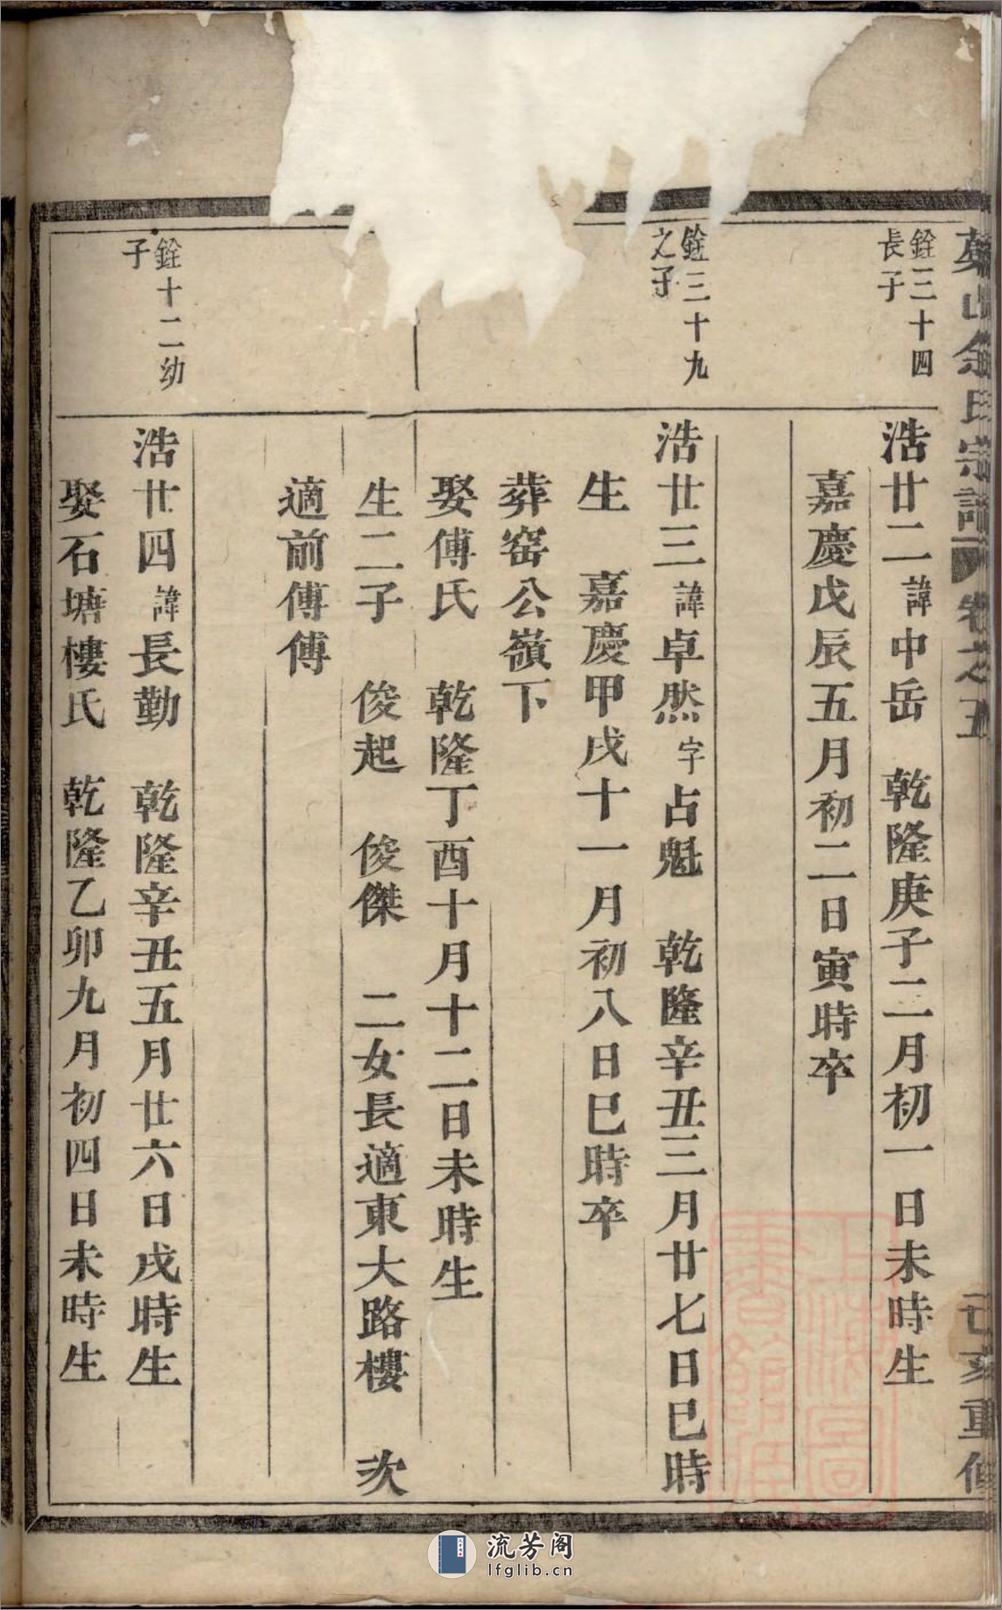 余氏宗譜 卷之五 己亥重修
銓三十四
長子
浩廿二諱中岳 乾隆庚子二月初一日未時生
嘉慶戊辰五月初二日寅時卒
銓三十九
之子
浩廿三諱卓然字占魁 乾隆辛丑三月廿七日巳時
生 嘉慶甲戌十一月初八日巳時卒
葬窑公嶺下
娶傅氏 乾隆丁酉十月十二日未時生
生二子 俊起 俊傑 二女長適東大路樓 次
適前傅傅
銓十二幼
子
浩廿四諱長勤 乾隆辛丑五月廿六日戌時生
娶石塘樓氏 乾隆乙卯九月初四日未時生
流芳阁
lfglib.cn